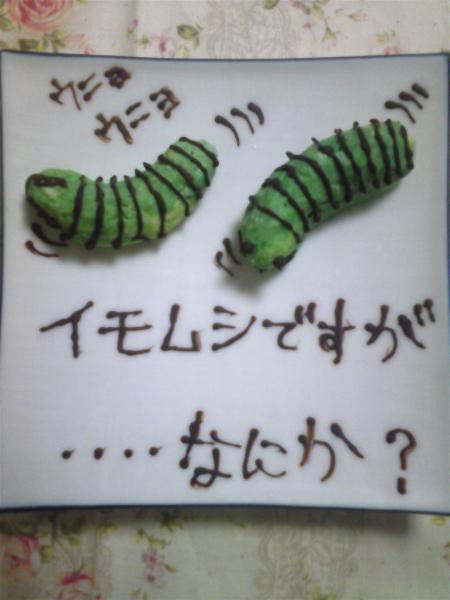 ウニョ
ウニョ
イモムシですが
....なにか?